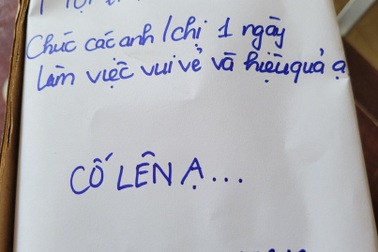 Chúc các anh/chị 1 ngày
làm việc vui vẻ và hiệu quả ạ
CỐ LÊN Ạ...